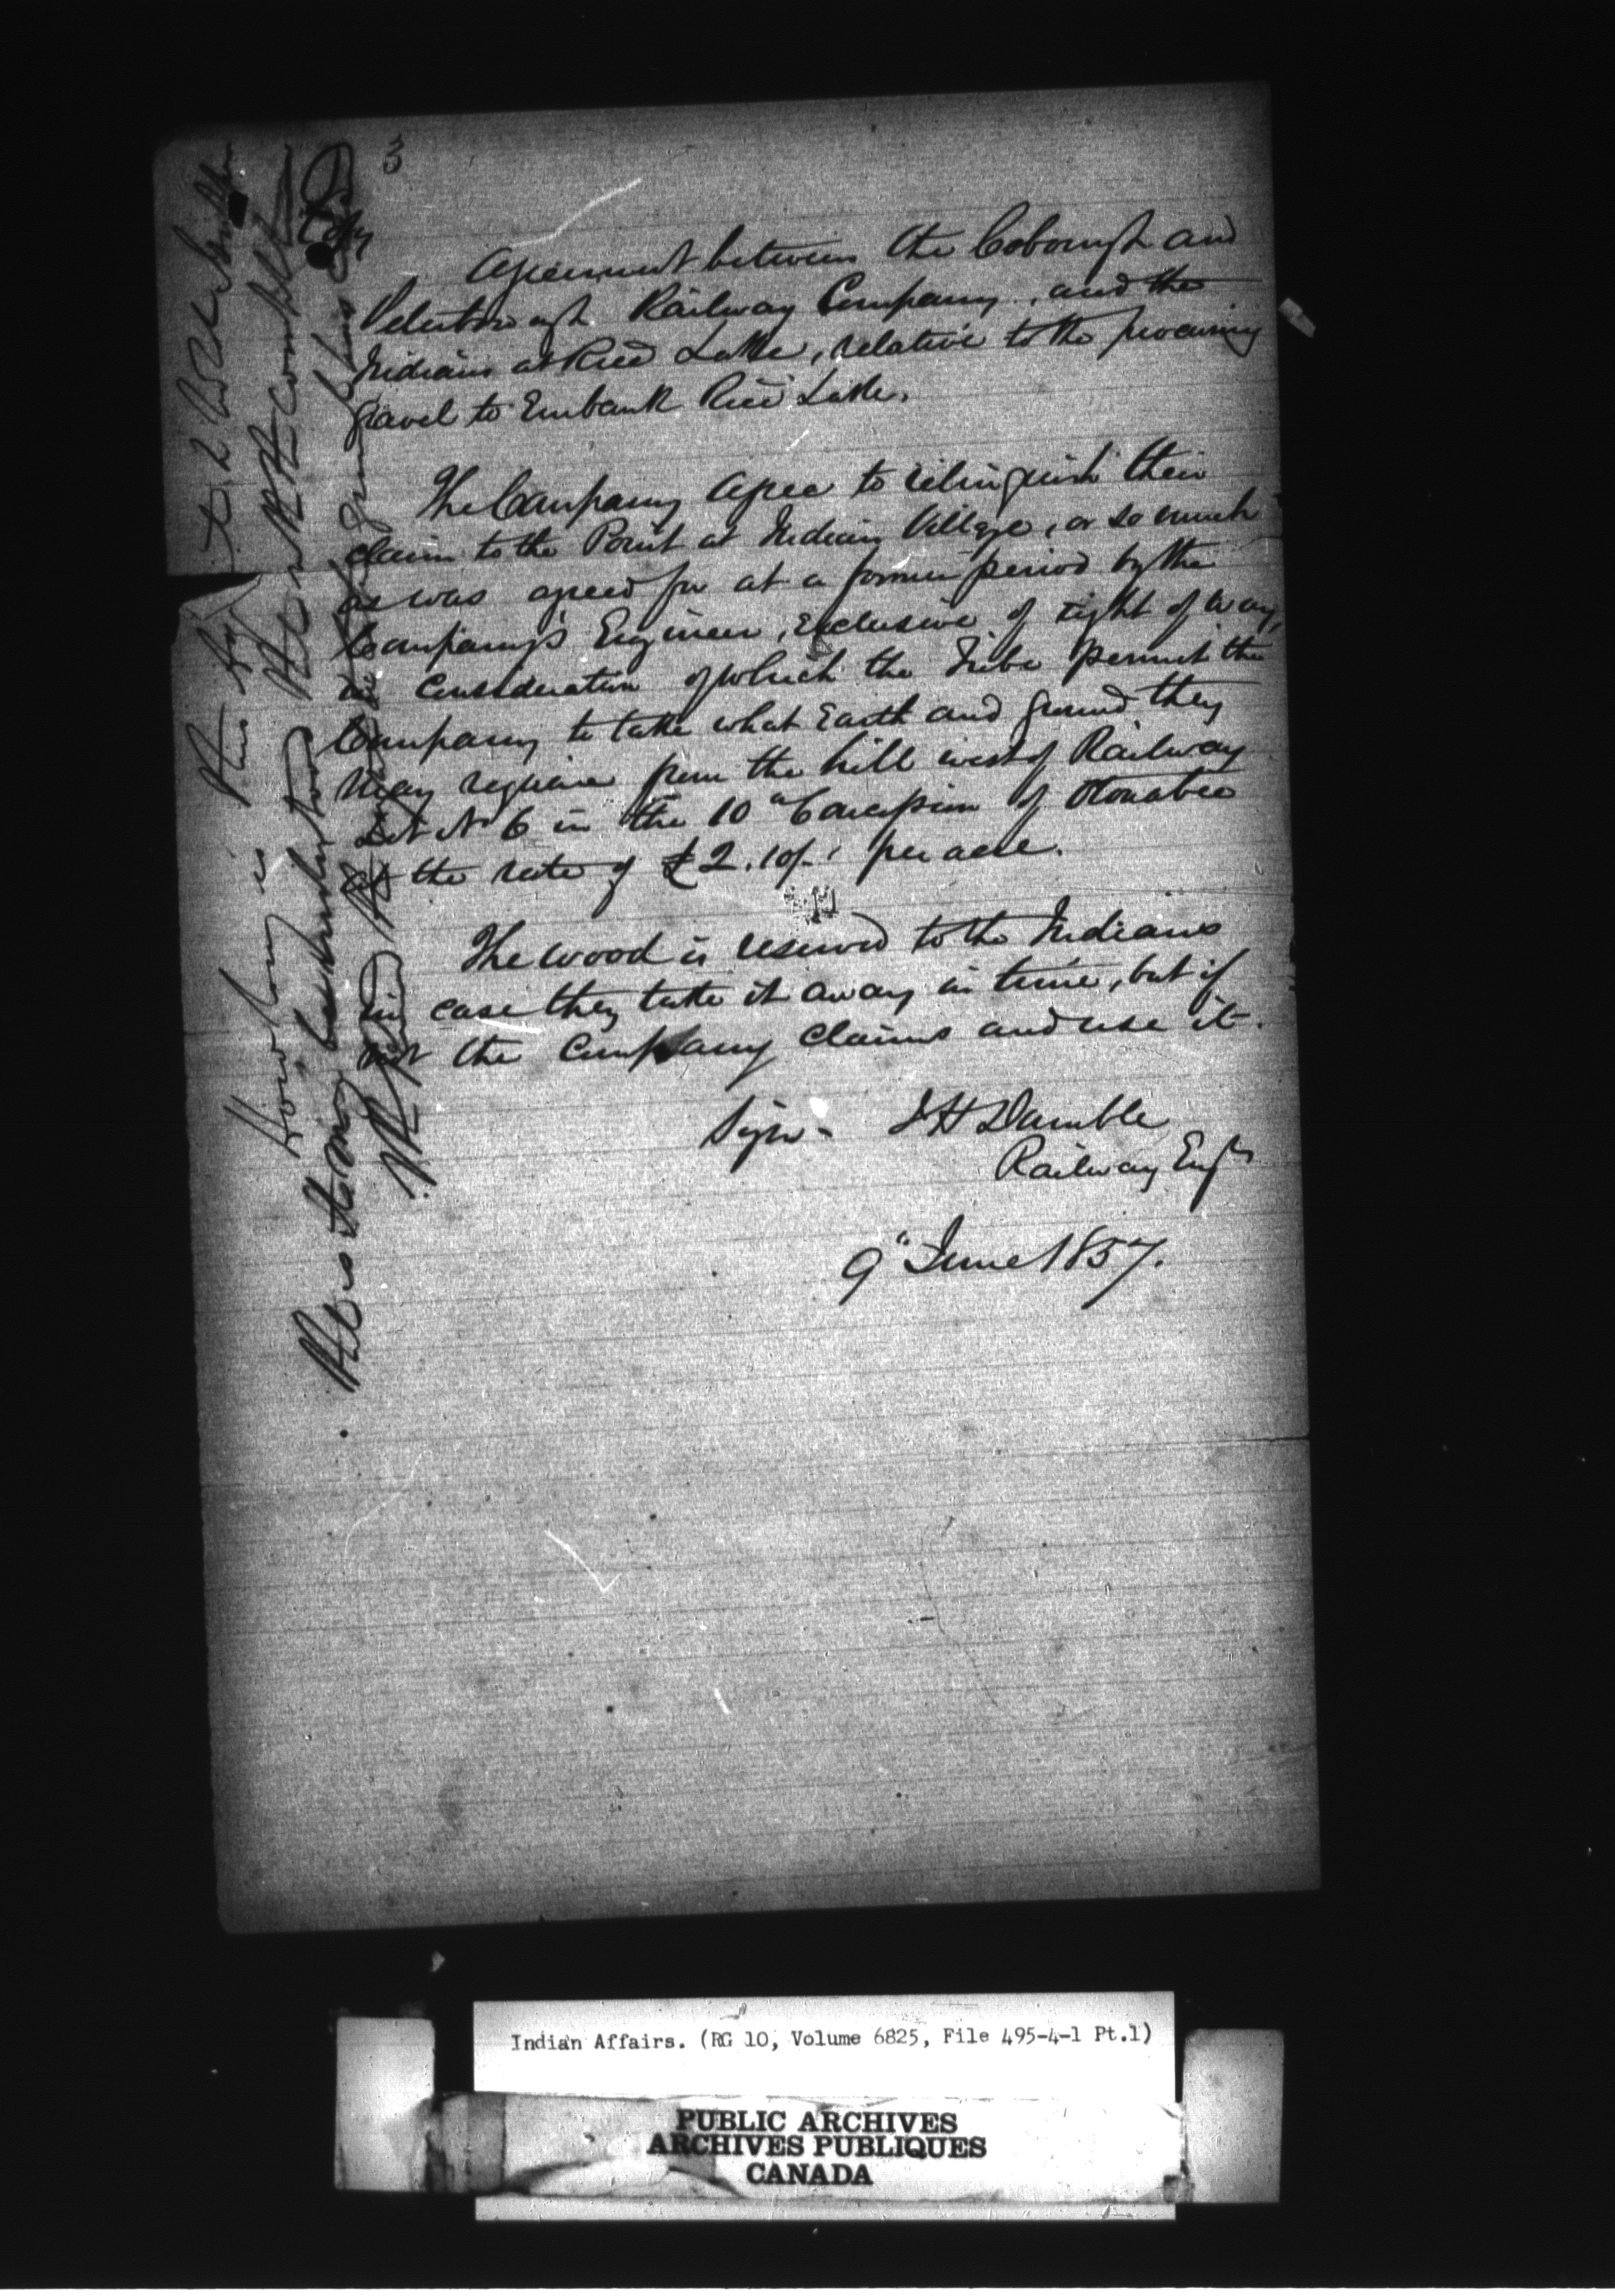 3
Agreement between the Cobourgh and
Peterborough Railway Company, and the
Indians at Rice Lake, relative to the procuring
gravel to Embank Rice Lake.
The Company agree to relinquish their
claim to the Point at Indian Village, or so much
as was agreed for at a former period by the
Company's Engineer, exclusive of right of way,
in consideration of which the Tribe permit the
Company to take what Earth and ground they
may require from the hill west of Railway
Lot No 6 in the 10" Concession of Otonabee
at the rate of £2.10/- per acre.
The wood is reserved to the Indians
in case they take it away in time, but if
not the Company claims and use it.
Sign - J H Dumble
Railway Engr
9" June 1857.
How long is this
Indian Affairs. (RG 10, Volume 6825, File 495-4-1 Pt.1)
PUBLIC ARCHIVES
ARCHIVES PUBLIQUES
CANADA